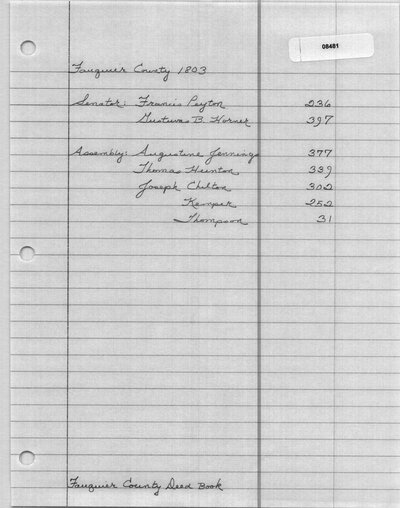 08481
Fauquier County 1803
Senator: Francis Peyton 236
Gustuvas B. Horner 397
Assembly: Augustine Jennings 377
Thomas Hunton 339
Joseph Chilton 302
Kemper 252
Thompson 31
Fauquier County Deed Book